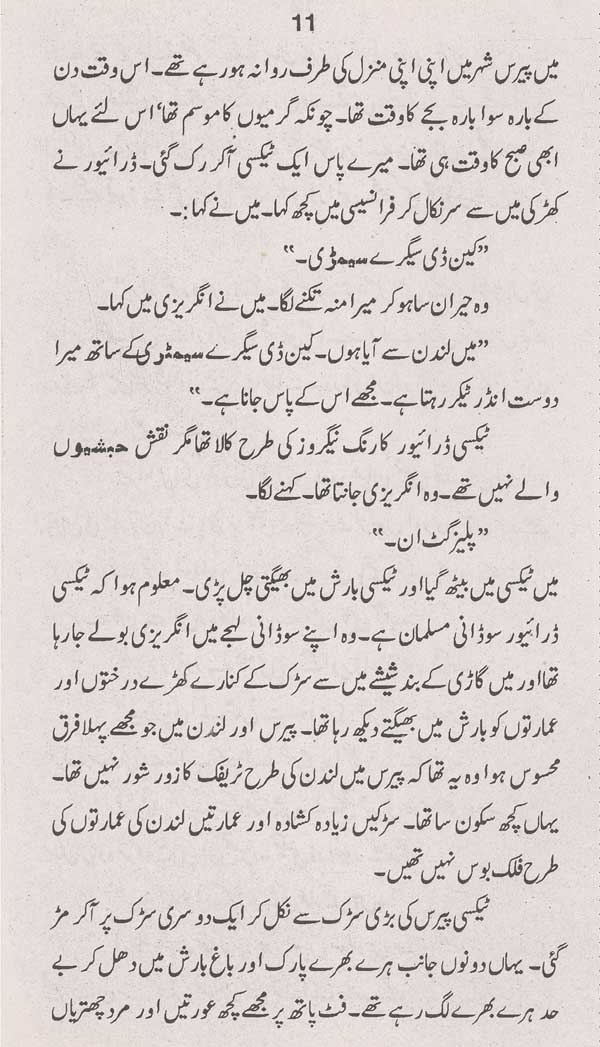 11
میں پیرس شہر میں اپنی اپنی منزل کی طرف روانہ ہو رہے تھے۔ اس وقت دن
کے بارہ سوا بارہ بجے کا وقت تھا۔ چونکہ گرمیوں کا موسم تھا‘ اس لئے یہاں
ابھی صبح کا وقت ہی تھا۔ میرے پاس ایک ٹیکسی آکر رک گئی۔ ڈرائیور نے
کھڑکی میں سے سر نکال کر فرانسیسی میں کچھ کہا۔ میں نے کہا :۔
”کین ڈی سیگرے سیمڑی۔“
وہ حیران سا ہو کر میرا منہ تکنے لگا۔ میں نے انگریزی میں کہا۔
”میں لندن سے آیا ہوں۔ کین ڈی سیگرے سیمٹری کے ساتھ میرا
دوست انڈر ٹیکر رہتا ہے۔ مجھے اس کے پاس جانا ہے۔“
ٹیکسی ڈرائیور کا رنگ نیگروز کی طرح کالا تھا مگر نقش حبشیوں
والے نہیں تھے۔ وہ انگریزی جانتا تھا۔ کہنے لگا۔
”پلیز گٹ ان۔“
میں ٹیکسی میں بیٹھ گیا اور ٹیکسی بارش میں بھیگتی چل پڑی۔ معلوم ہوا کہ ٹیکسی
ڈرائیور سوڈانی مسلمان ہے۔ وہ اپنے سوڈانی لہجے میں انگریزی بولے جا رہا
تھا اور میں گاڑی کے بند شیشے میں سے سڑک کے کنارے کھڑے درختوں اور
عمارتوں کو بارش میں بھیگتے دیکھ رہا تھا۔ پیرس اور لندن میں جو مجھے پہلا فرق
محسوس ہوا وہ یہ تھا کہ پیرس میں لندن کی طرح ٹریفک کا زور شور نہیں تھا۔
یہاں کچھ سکون سا تھا۔ سڑکیں زیادہ کشادہ اور عمارتیں لندن کی عمارتوں کی
طرح فلک بوس نہیں تھیں۔
ٹیکسی پیرس کی بڑی سڑک سے نکل کر ایک دوسری سڑک پر آکر مڑ
گئی۔ یہاں دونوں جانب ہرے بھرے پارک اور باغ بارش میں دھل کر بے
حد ہرے بھرے لگ رہے تھے۔ فٹ پاتھ پر مجھے کچھ عورتیں اور مرد چھتریاں